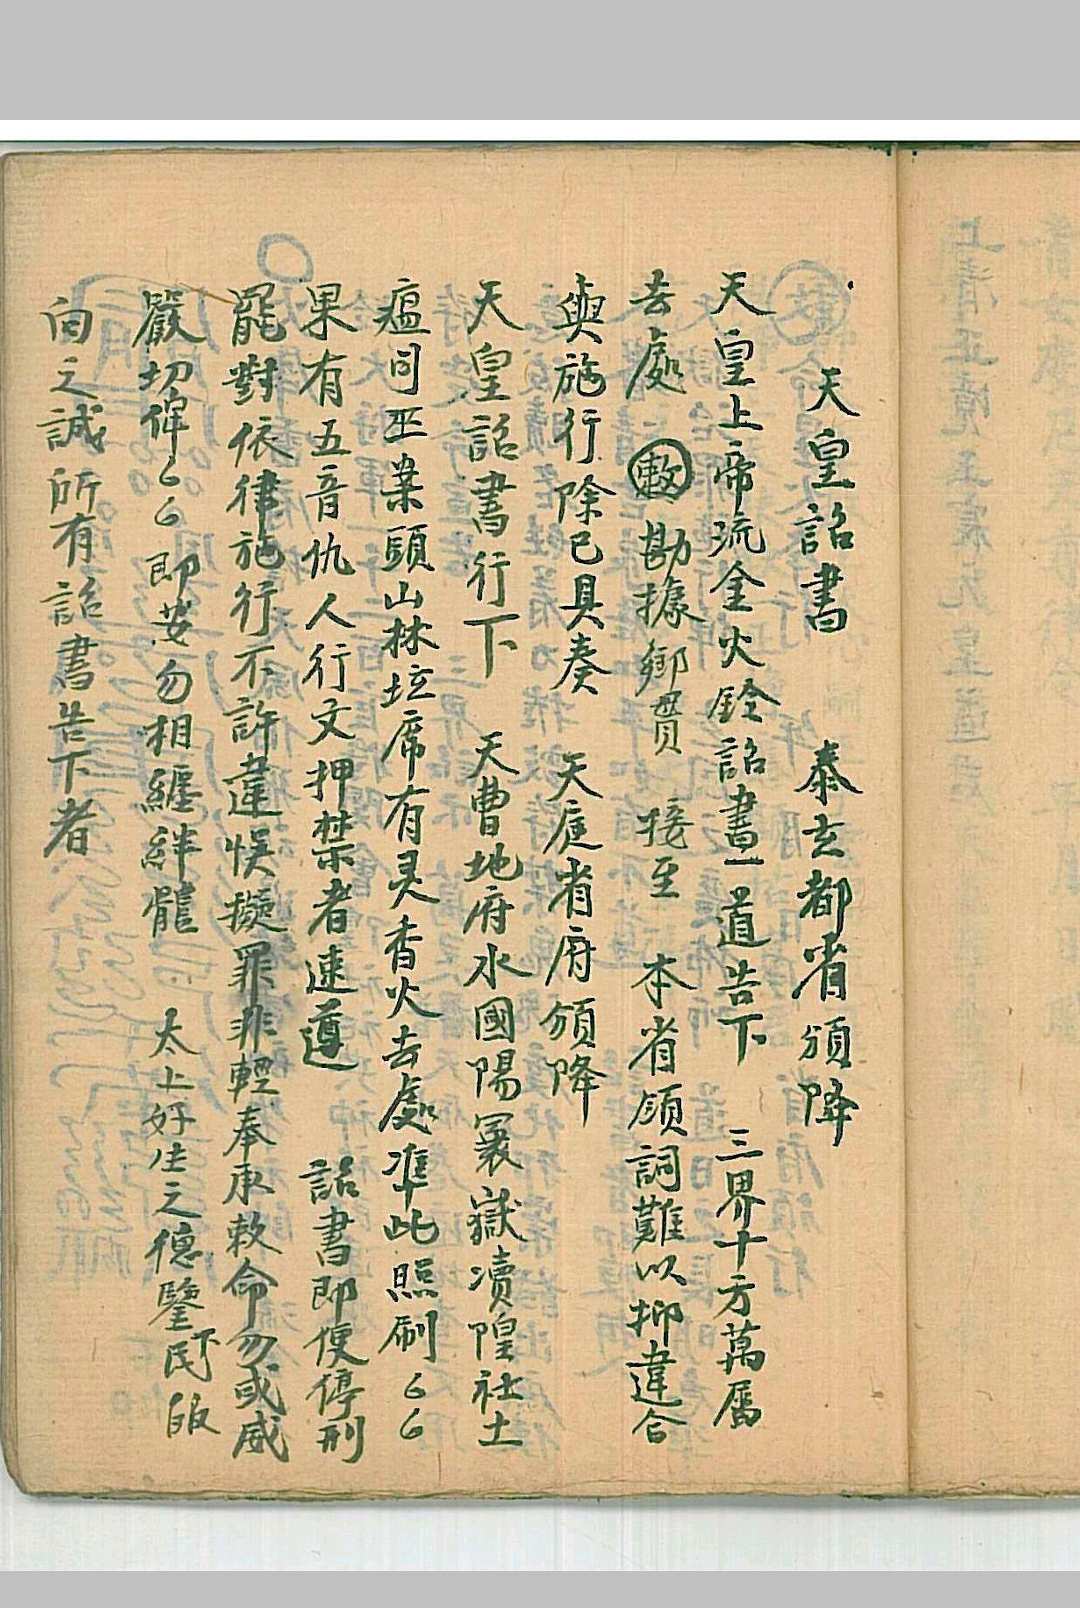 天皇詔書　泰玄都省頒降
天皇上帝流金火鈴詔書一道告下　三界十方萬屬
去處　敕勘據鄉貫　接至　本省領詞難以抑違合
與施行除已具奏　天庭省府頒降
天皇詔書行下　天曹地府水國陽冥嶽瀆隍社土
瘟司巫業頭山林坛席有灵香火去處准此照刷
果有五音仇人行文押禁者速遵　詔書即便停刑
罷對依律施行不許違悞擬罪非輕奉承敕命勿或威
嚴切俾　即要勿相纏絆　太上好生之德鑒下民皈
向之誠所有詔書告下者